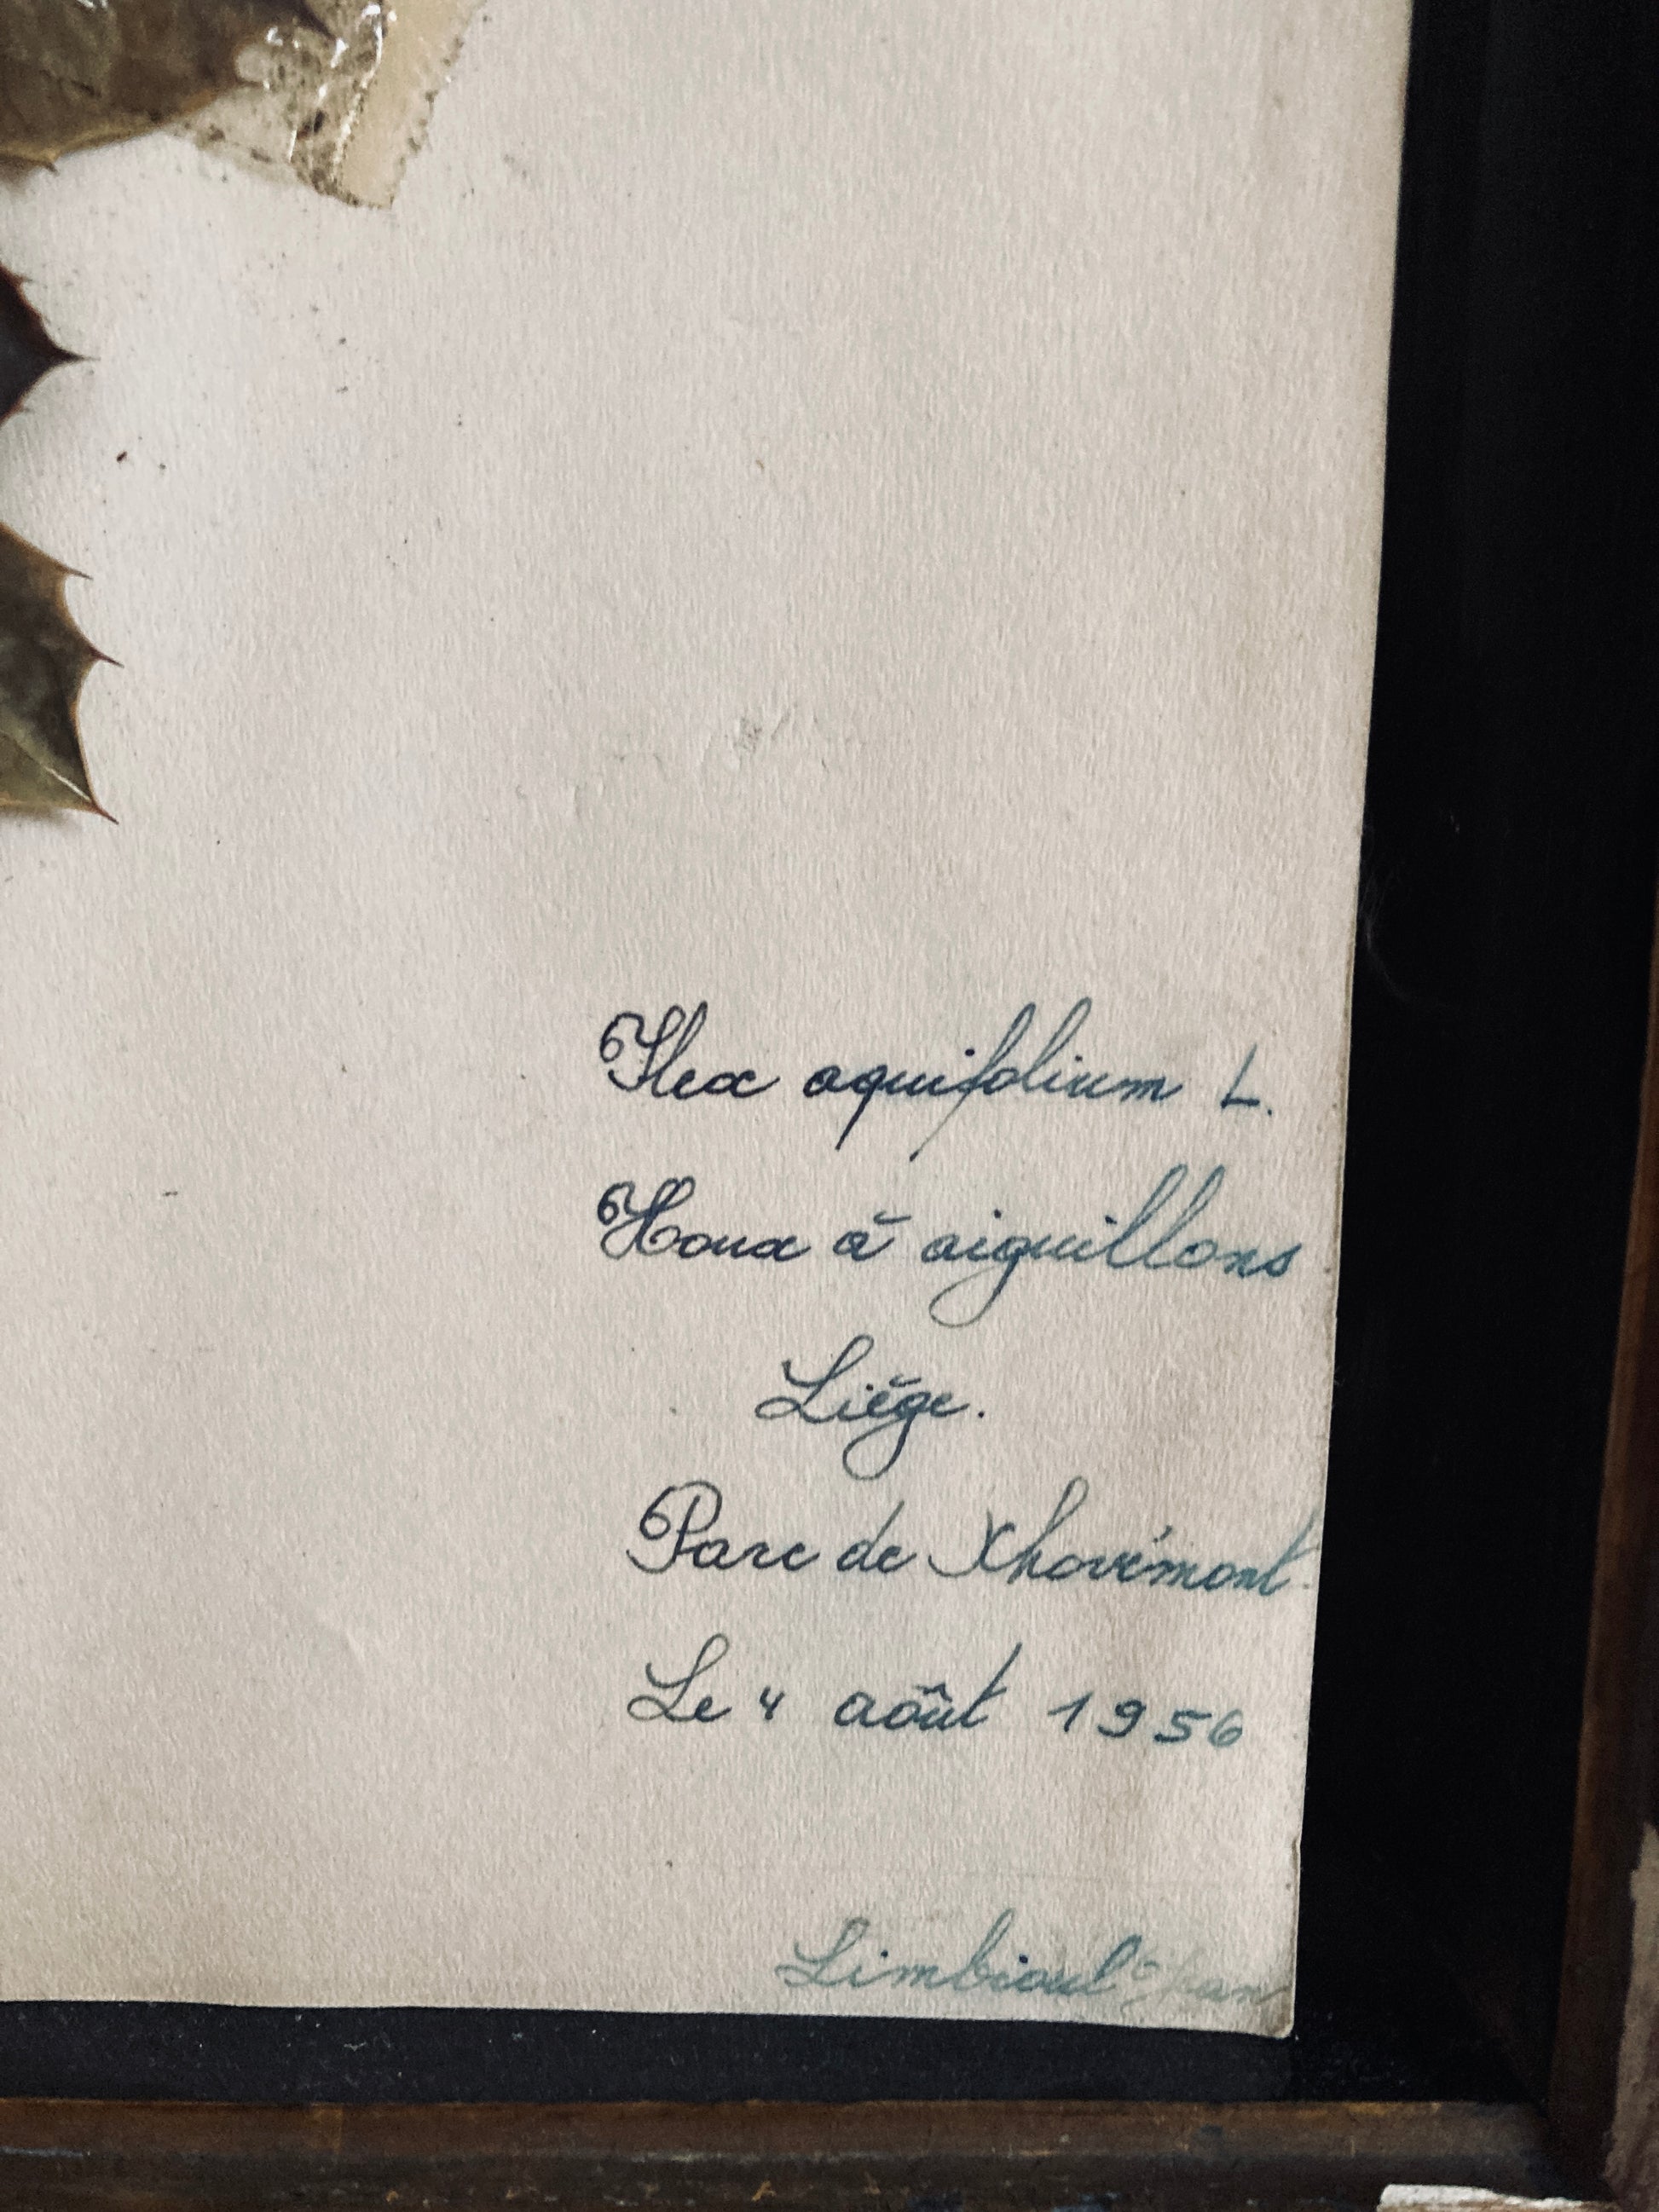 Ilex aquifolium L.
Houx à aiguillons
Liège.
Parc de Xhovémont.
Le 4 août 1956
Limbioul Jean